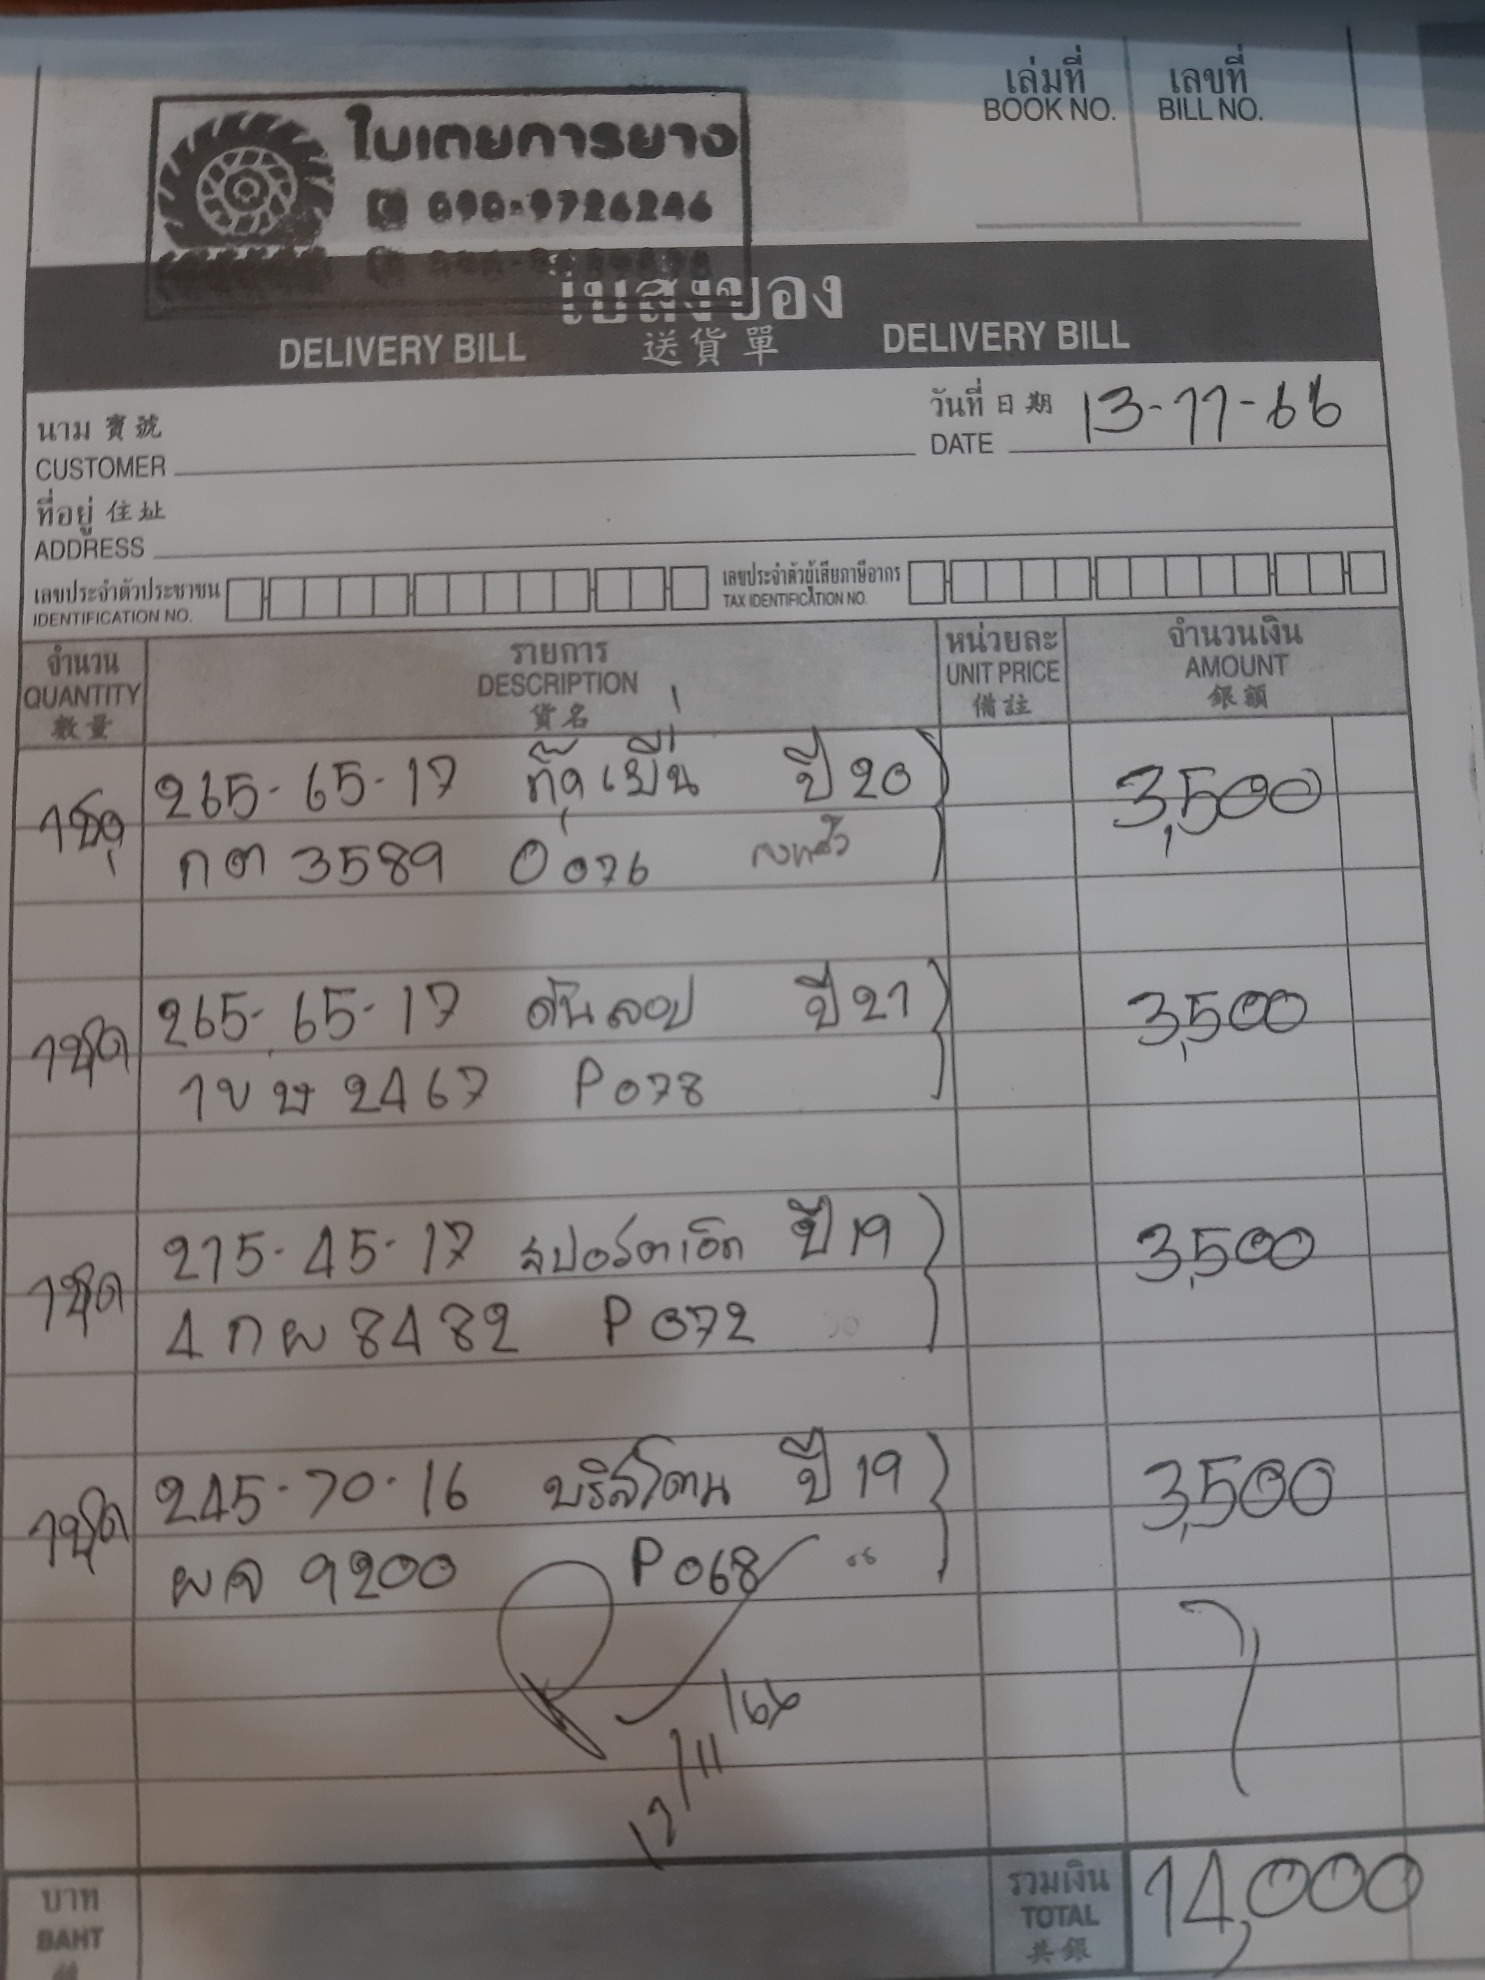 เล่มที่ เลขที่
BOOK NO. BILL NO.
ใบเตยการยาง
090-9726246
ใบส่งของ
DELIVERY BILL 送貨單 DELIVERY BILL
นาม 寶號 วันที่ 日期 13-11-66
CUSTOMER DATE
ที่อยู่ 住址
ADDRESS
เลขประจำตัวประชาชน เลขประจำตัวผู้เสียภาษีอากร
IDENTIFICATION NO. TAX IDENTIFICATION NO.
จำนวน รายการ หน่วยละ จำนวนเงิน
QUANTITY DESCRIPTION UNIT PRICE AMOUNT
數量 貨名 備註 銀額
1ชุด 265-65-17 ปี 20 3,500
กต 3589 0076
1ชุด 265-65-17 ดันลอป ปี 21 3,500
1ขษ 2467 P078
1ชุด 215-45-17 สปอร์ตเอ็ก ปี 19 3,500
4กผ 8482 P072
1ชุด 245-70-16 บริสโตน ปี 19 3,500
ผจ 9200 P068
17/11/66
บาท รวมเงิน 14,000
BAHT TOTAL
共銀